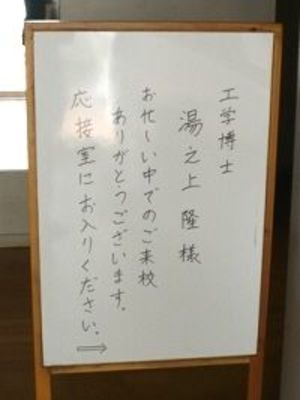 工学博士
湯之上 隆 様
お忙しい中でのご来校
ありがとうございます。
応接室にお入りください。⇒